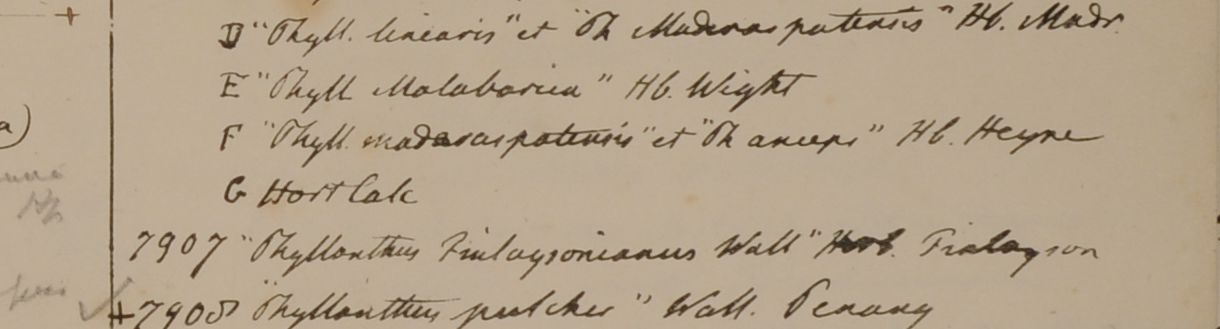 D "Phyll. linearis" et "Ph Maderaspatensis" Hb. Madr.
E "Phyll Malabarica" Hb. Wight
F "Phyll. maderaspatensis" et "Ph anceps" Hb. Heyne
a)
G Hort Calc
7907 "Phyllanthus Finlaysonianus Wall" Herb. Finlayson
+7908 "Phyllanthus pulcher" Wall. Penang